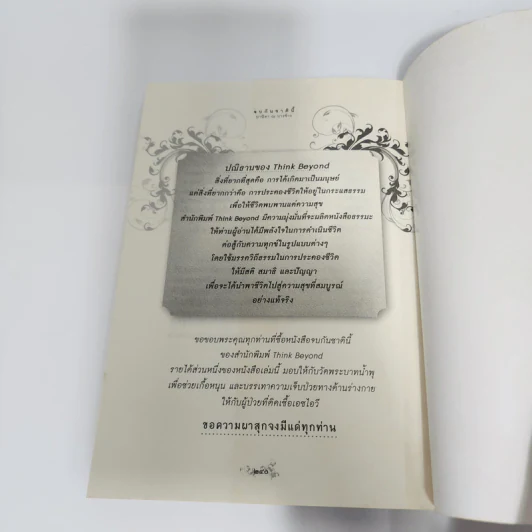 จบกันชาตินี้
ปณิธานของ Think Beyond
สิ่งที่ยากที่สุดคือ การได้เกิดมาเป็นมนุษย์
แต่สิ่งที่ยากกว่าคือ การประคองชีวิตให้อยู่ในกระแสธรรม
เพื่อให้ชีวิตพบพานแต่ความสุข
สำนักพิมพ์ Think Beyond มีความมุ่งมั่นที่จะผลิตหนังสือธรรมะ
ให้ท่านผู้อ่านได้มีพลังใจในการดำเนินชีวิต
ต่อสู้กับความทุกข์ในรูปแบบต่างๆ
โดยใช้มรรควิถีธรรมในการประคองชีวิต
ให้มีสติ สมาธิ และปัญญา
เพื่อจะได้นำพาชีวิตไปสู่ความสุขที่สมบูรณ์
อย่างแท้จริง
ขอขอบพระคุณทุกท่านที่ซื้อหนังสือจบกันชาตินี้
ของสำนักพิมพ์ Think Beyond
รายได้ส่วนหนึ่งของหนังสือเล่มนี้ มอบให้กับวัดพระบาทน้ำพุ
เพื่อช่วยเกื้อหนุน และบรรเทาความเจ็บป่วยทางด้านร่างกาย
ให้กับผู้ป่วยที่ติดเชื้อเอชไอวี
ขอความผาสุกจงมีแด่ทุกท่าน